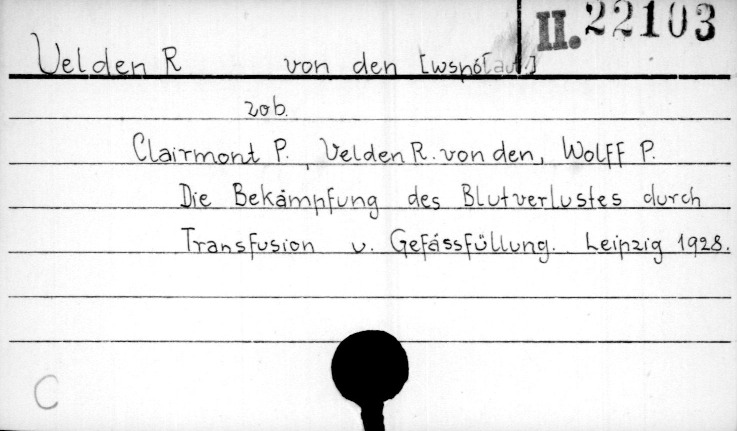 II. 22103
Velden R von den [współaut.]
zob.
Clairmont P., Velden R. von den, Wolff P.
Die Bekämpfung des Blutverlustes durch
Transfusion u. Gefässfüllung. Leipzig 1928.
C